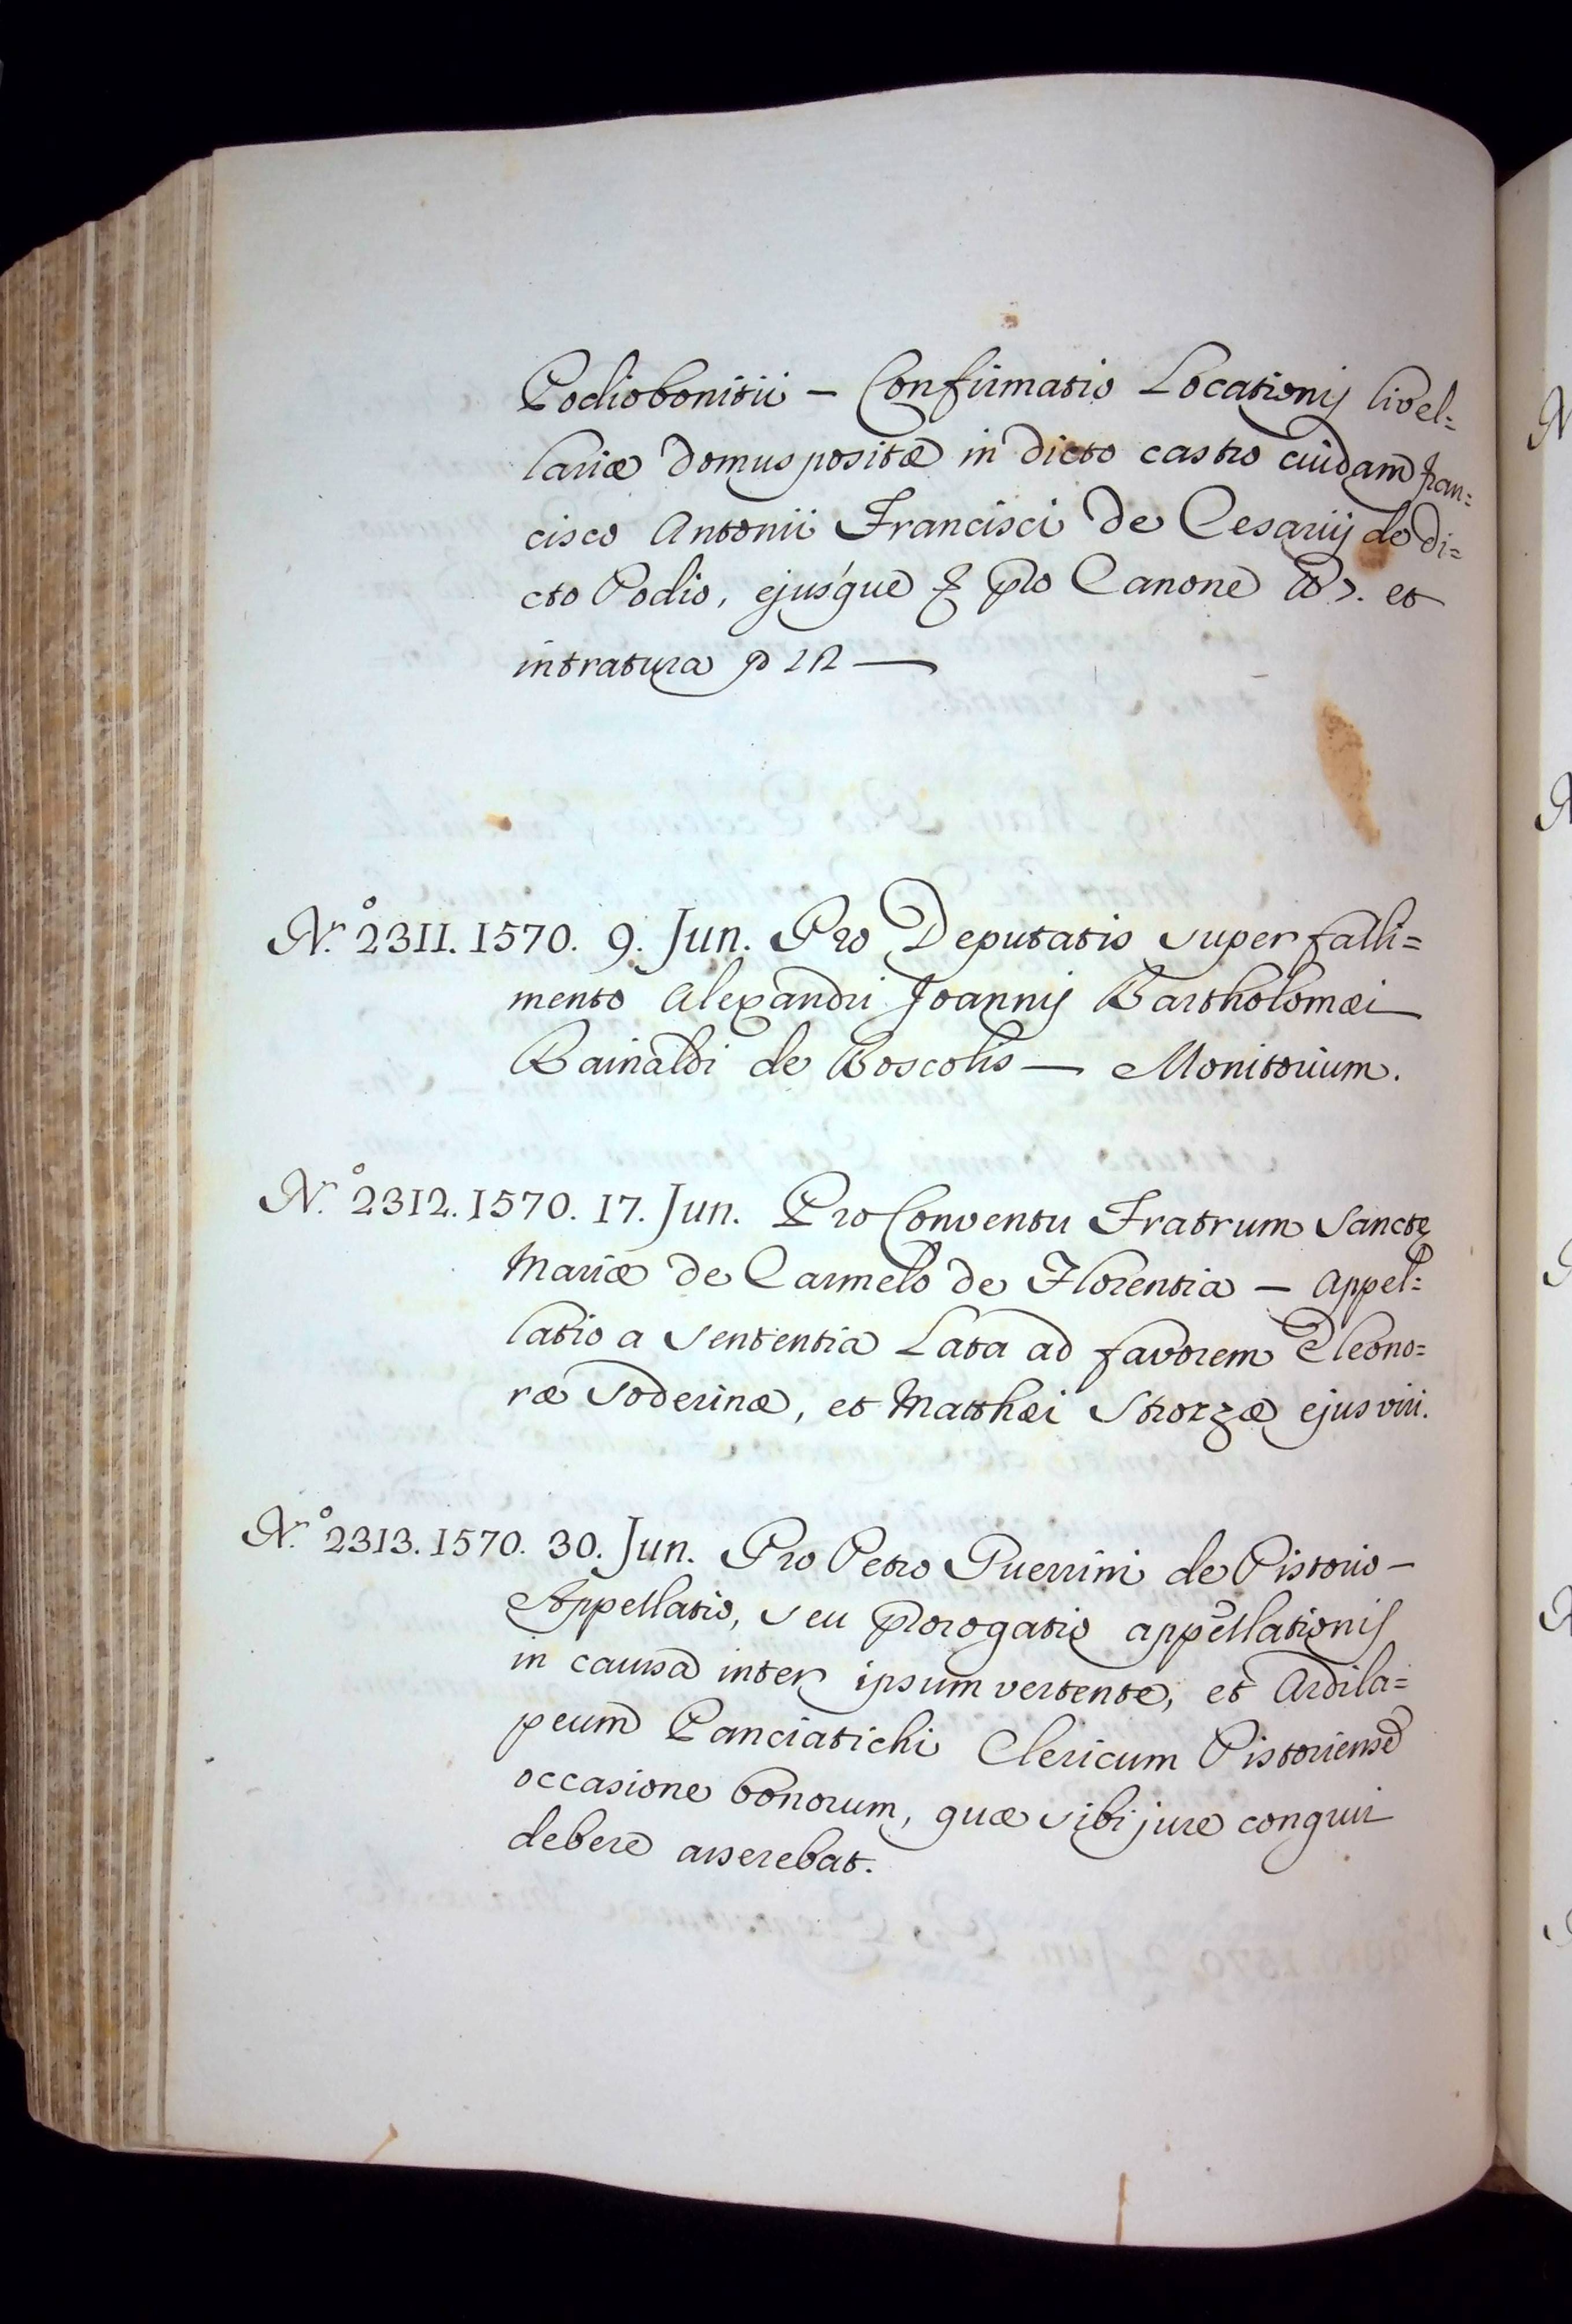 Podiobonitii – Confirmatio Locationis livel=
lariæ domus positæ in dicto castro cuidam Fran=
cisco Antonii Francisci de Cesariis de di=
cto Podio, ejusque & pro Canone et
intratura
N.º 2311. 1570. 9. Jun. Pro Deputatis super falli=
mento Alexandri Joannis Bartholomæi
Rainaldi de Boscolis — Monitorium.
N.º 2312. 1570. 17. Jun. Pro Conventu Fratrum Sanctę
Mariæ de Carmelo de Florentia – Appel=
latio a Sententia Lata ad favorem Eleono=
ræ Soderinæ, et Matthæi Strozzæ ejus viri.
N.º 2313. 1570. 30. Jun. Pro Petro Guerrini de Pistorio –
Appellatio, seu prorogatio appellationis
in causa inter ipsum vertente, et Ardila=
peum Panciatichi Clericum Pistoriense
occasione bonorum, quæ sibi jure congrui
debere asserebat.